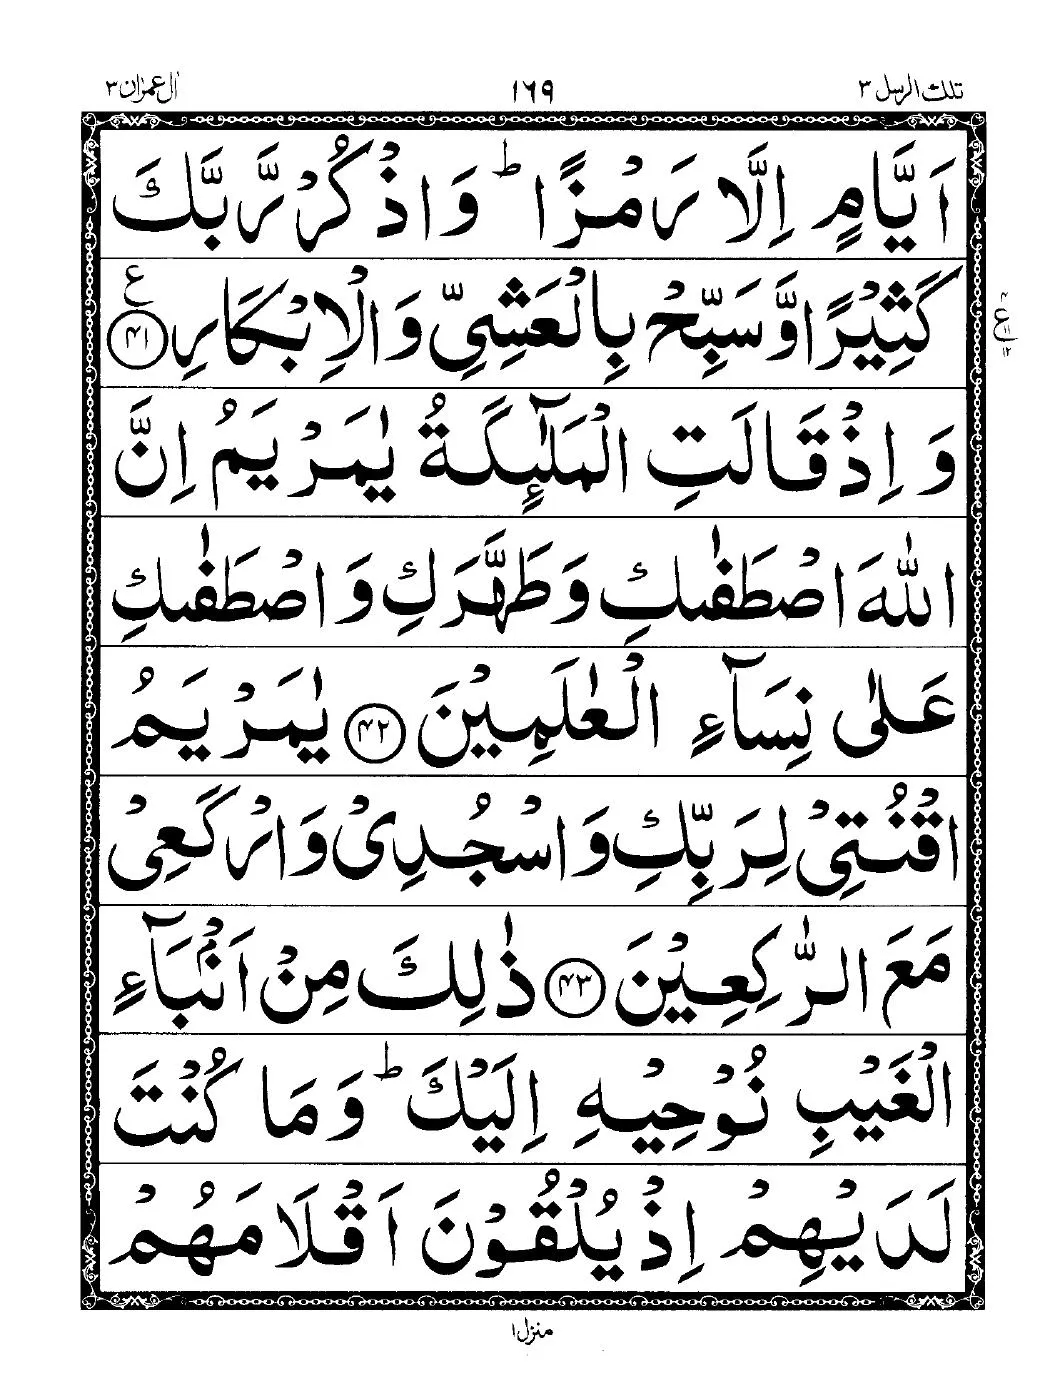 تلك الرسل ٣
١٦٩
اٰل عمرٰن ٣
اَيَّامٍ اِلَّا رَمْزًا ؕ وَاذْكُرْ رَّبَّكَ
كَثِيْرًا وَّسَبِّحْ بِالْعَشِيِّ وَالْاِبْكَارِ ﴿۴۱﴾ ع
۴
ع
۱۱
۱۲
وَاِذْ قَالَتِ الْمَلٰٓئِكَةُ يٰمَرْيَمُ اِنَّ
اللّٰهَ اصْطَفٰىكِ وَطَهَّرَكِ وَاصْطَفٰىكِ
عَلٰى نِسَآءِ الْعٰلَمِيْنَ ﴿۴۲﴾ يٰمَرْيَمُ
اقْنُتِيْ لِرَبِّكِ وَاسْجُدِيْ وَارْكَعِيْ
مَعَ الرّٰكِعِيْنَ ﴿۴۳﴾ ذٰلِكَ مِنْ اَنْۢبَآءِ
الْغَيْبِ نُوْحِيْهِ اِلَيْكَ ؕ وَمَا كُنْتَ
لَدَيْهِمْ اِذْ يُلْقُوْنَ اَقْلَامَهُمْ
منزل ۱